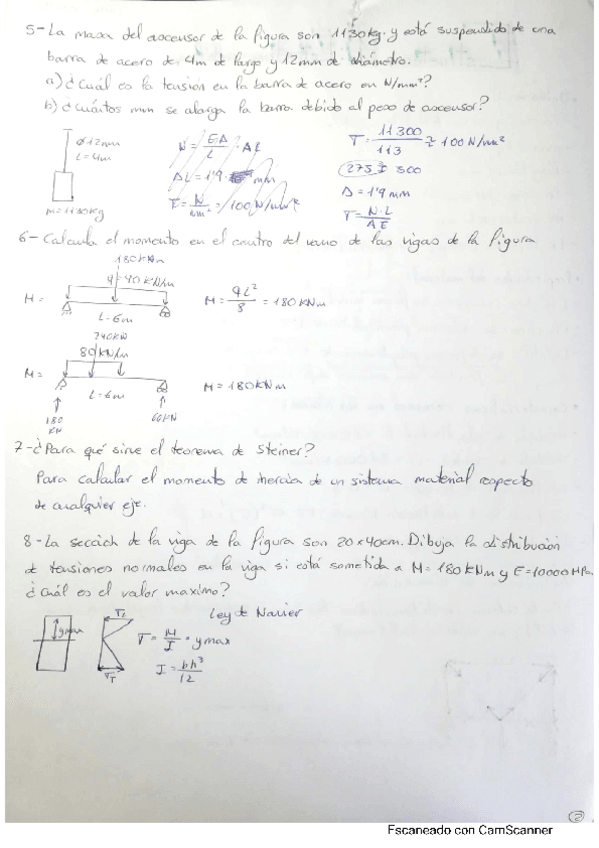 5- La masa del ascensor de la figura son 1130kg. y está suspendido de una
barra de acero de 4m de largo y 12mm de diámetro.
a) ¿Cuál es la tensión en la barra de acero en N/mm²?
b) ¿Cuántos mm se alarga la barra debido al peso de ascensor?
Ø12mm
L=4m
M=1130kg
N = EA/L · ΔL
ΔL=1'9 mm
T = N/mm² = 100 N/mm²
T = 11300/113 ≈ 100 N/mm²
275 500
Δ = 1'9 mm
T = N·L/AE
6- Calcula el momento en el centro del vano de las vigas de la figura
180kNm
q=40 kN/m
M=
L=6m
M = qL²/8 = 180 kNm
240kN
80 kN/m
M=
L=6m
M = 180 kNm
180
kN
60kN
7- ¿Para qué sirve el teorema de Steiner?
Para calcular el momento de inercia de un sistema material respecto
de cualquier eje.
8- La sección de la viga de la figura son 20x40cm. Dibuja la distribución
de tensiones normales en la viga si está sometida a M=180kNm y E=10000 MPa.
¿Cuál es el valor maximo?
ymax
Ley de Navier
T = M/I · ymax
I = bh³/12
2
Escaneado con CamScanner